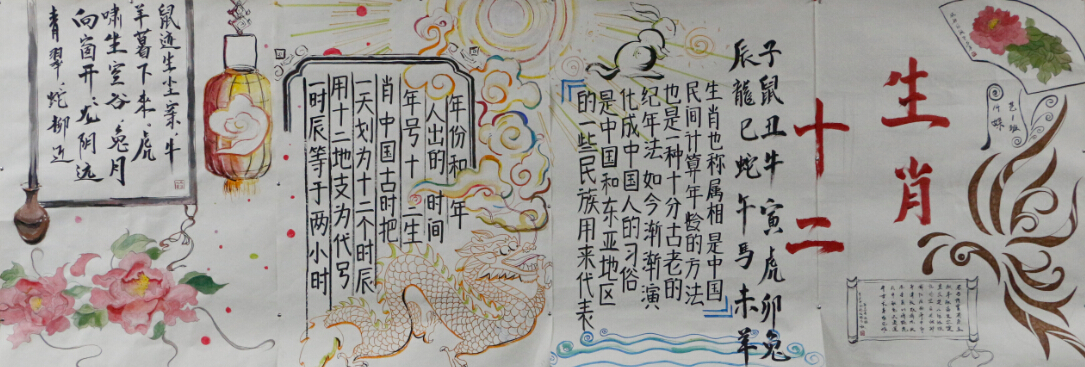 十二
生肖
子鼠丑牛寅虎卯兔
辰龍巳蛇午马未羊
生肖也称属相是中国
民间计算年龄的方法
也是一种十分古老的
纪年法如今渐渐演
化成中国人的习俗
是中国和东亚地区
的一些民族用来代表
年份和年
人出的时间
年号十二生
肖中国古时把
一天划为十二个时辰
用十二地支为代号
一时辰等于两小时
鼠迹生尘案牛
羊暮下来虎
啸坐空谷兔月
向窗开龙阴远
青翠蛇柳近